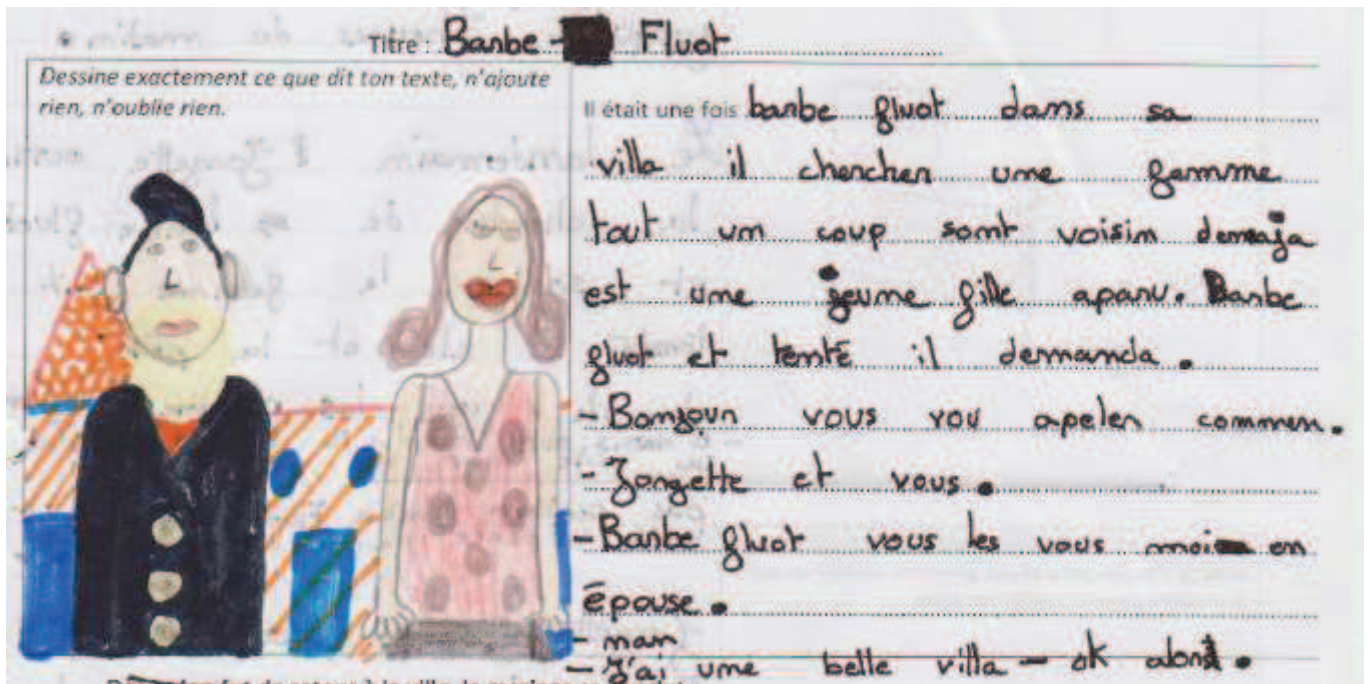 Titre : Barbe - Fluot
Dessine exactement ce que dit ton texte, n'ajoute
rien, n'oublie rien.
Il était une fois barbe fluot dans sa
villa il chercher une femme
tout un coup sont voisin demaja
est une jeune fille aparu. Barbe
fluot et tenté il demanda.
- Bonjour vous vou apeler commen.
- Jorgette et vous.
- Barbe fluot vous les vous moi en
épouse.
- nan
- J'ai une belle villa - ok alors.